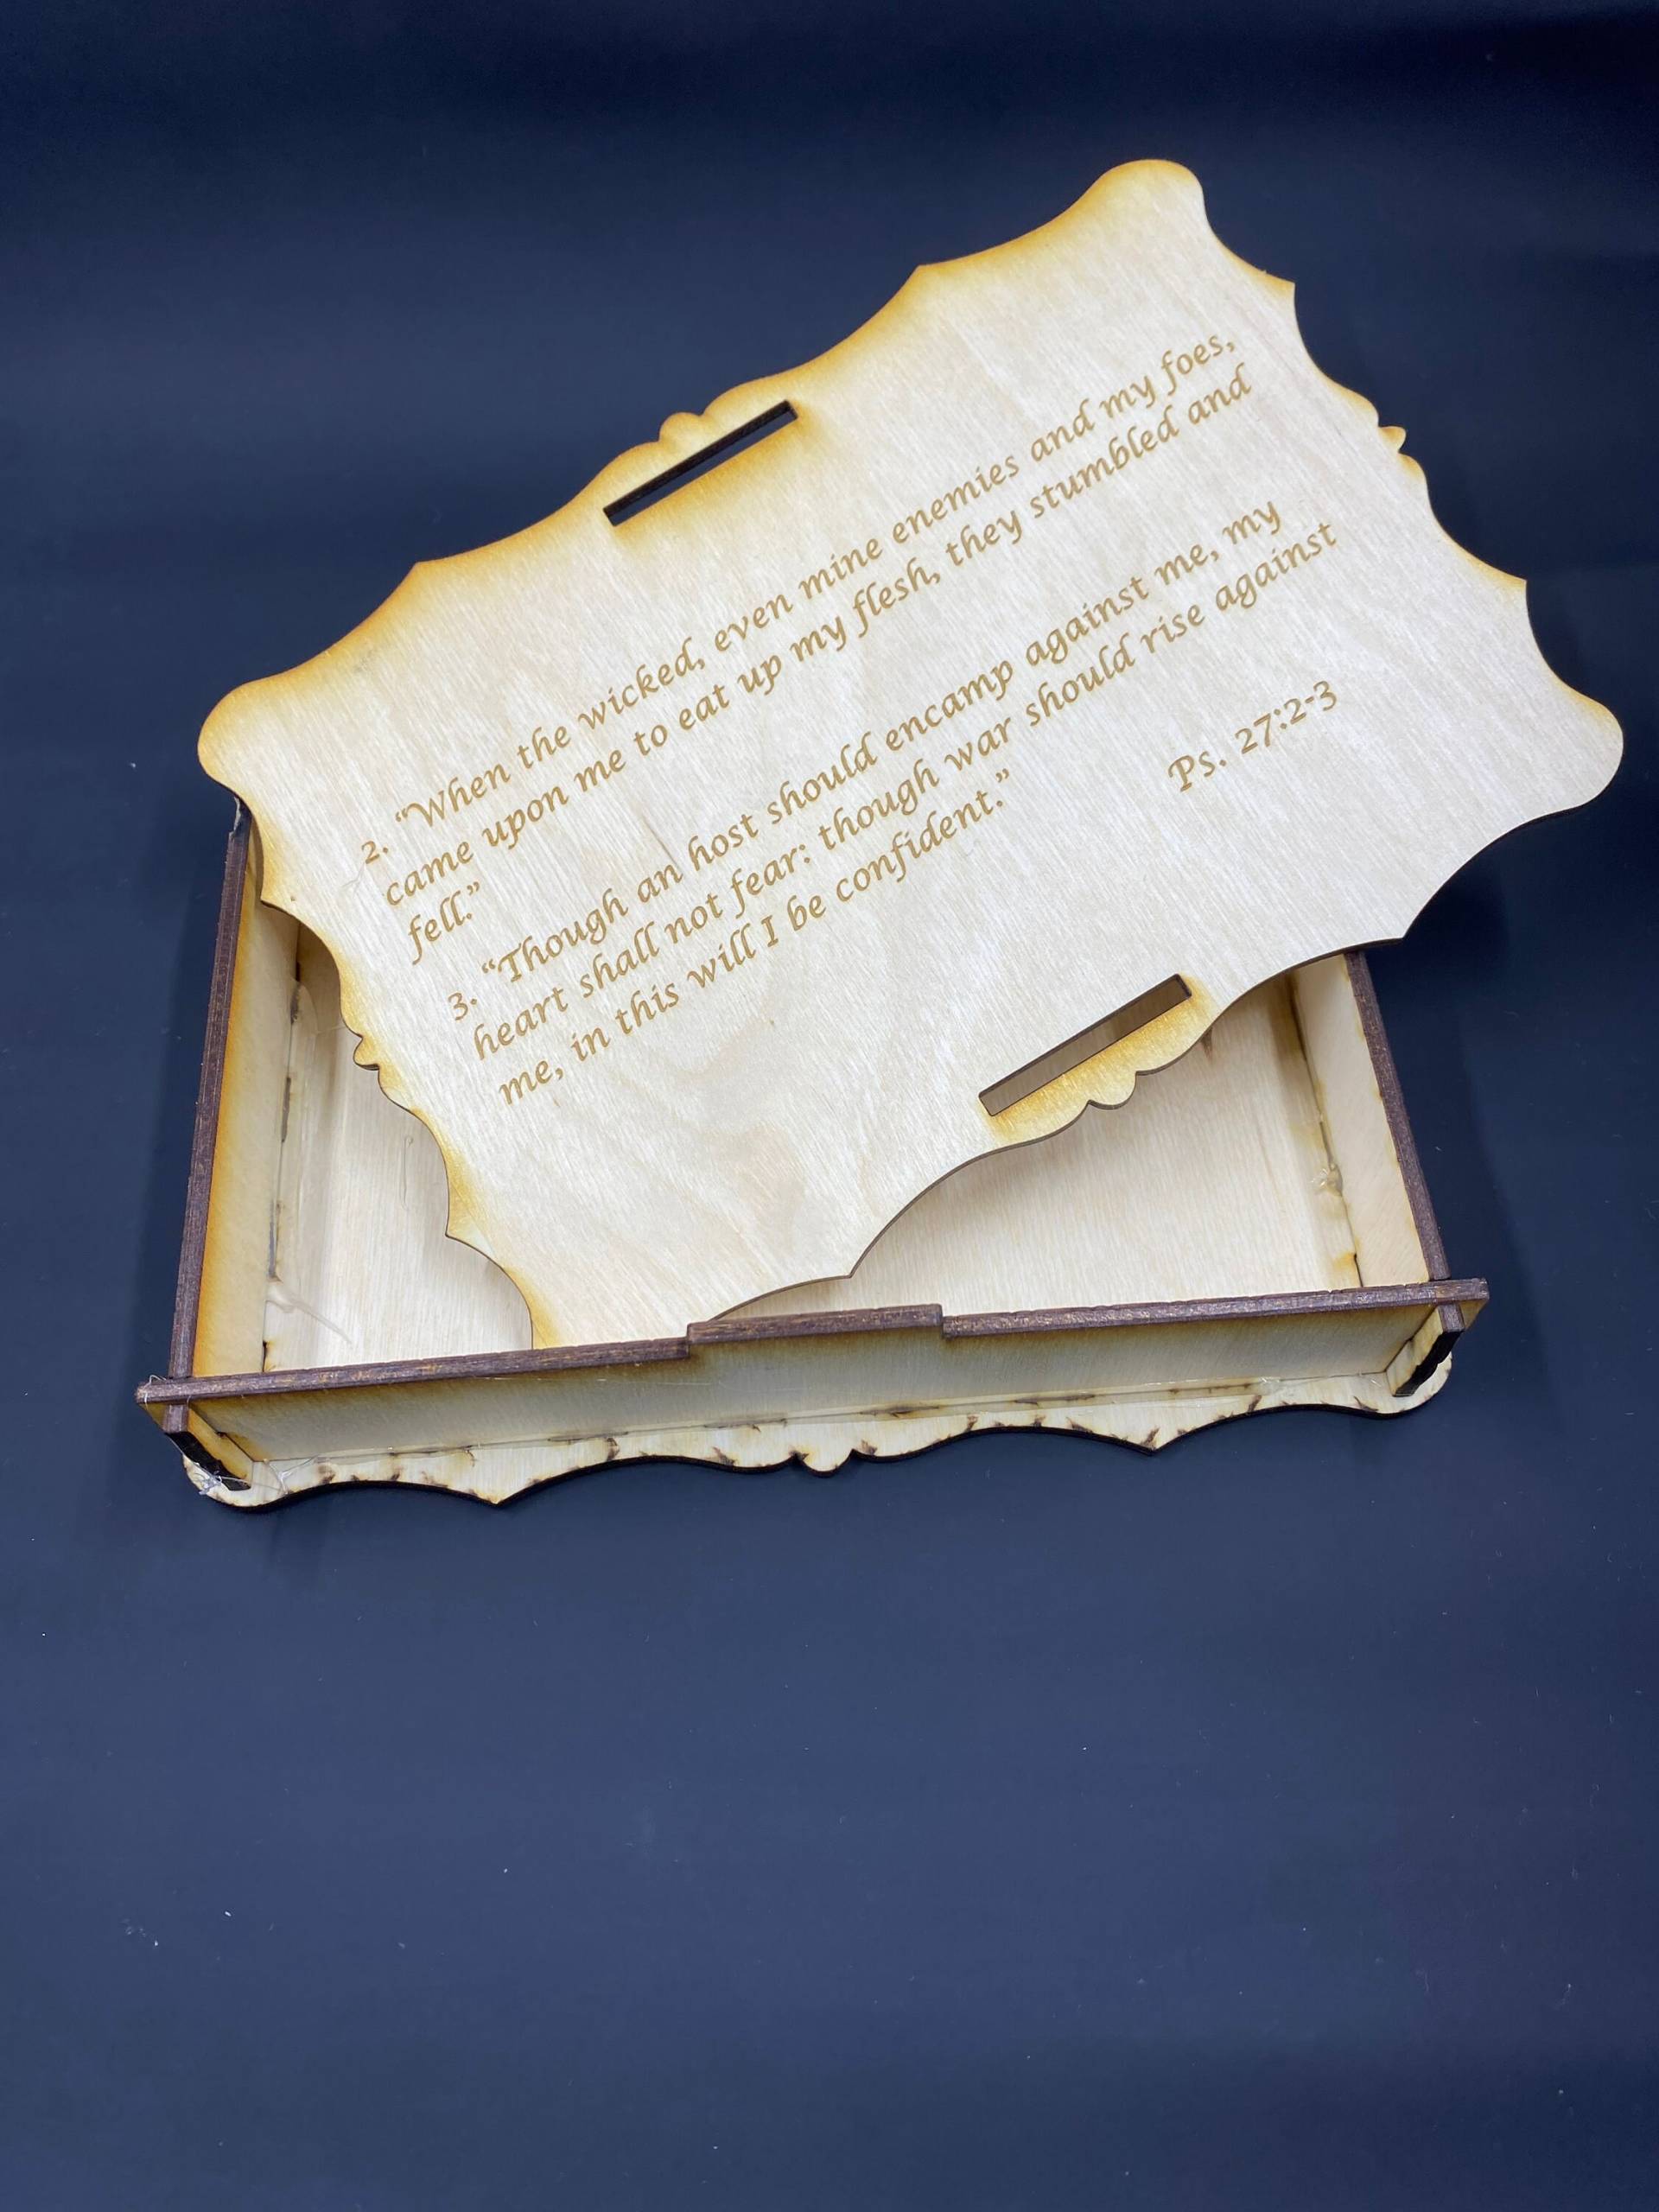 2. “When the wicked, even mine enemies and my foes,
came upon me to eat up my flesh, they stumbled and
fell.”
3. “Though an host should encamp against me, my
heart shall not fear: though war should rise against
me, in this will I be confident.”
Ps. 27:2-3